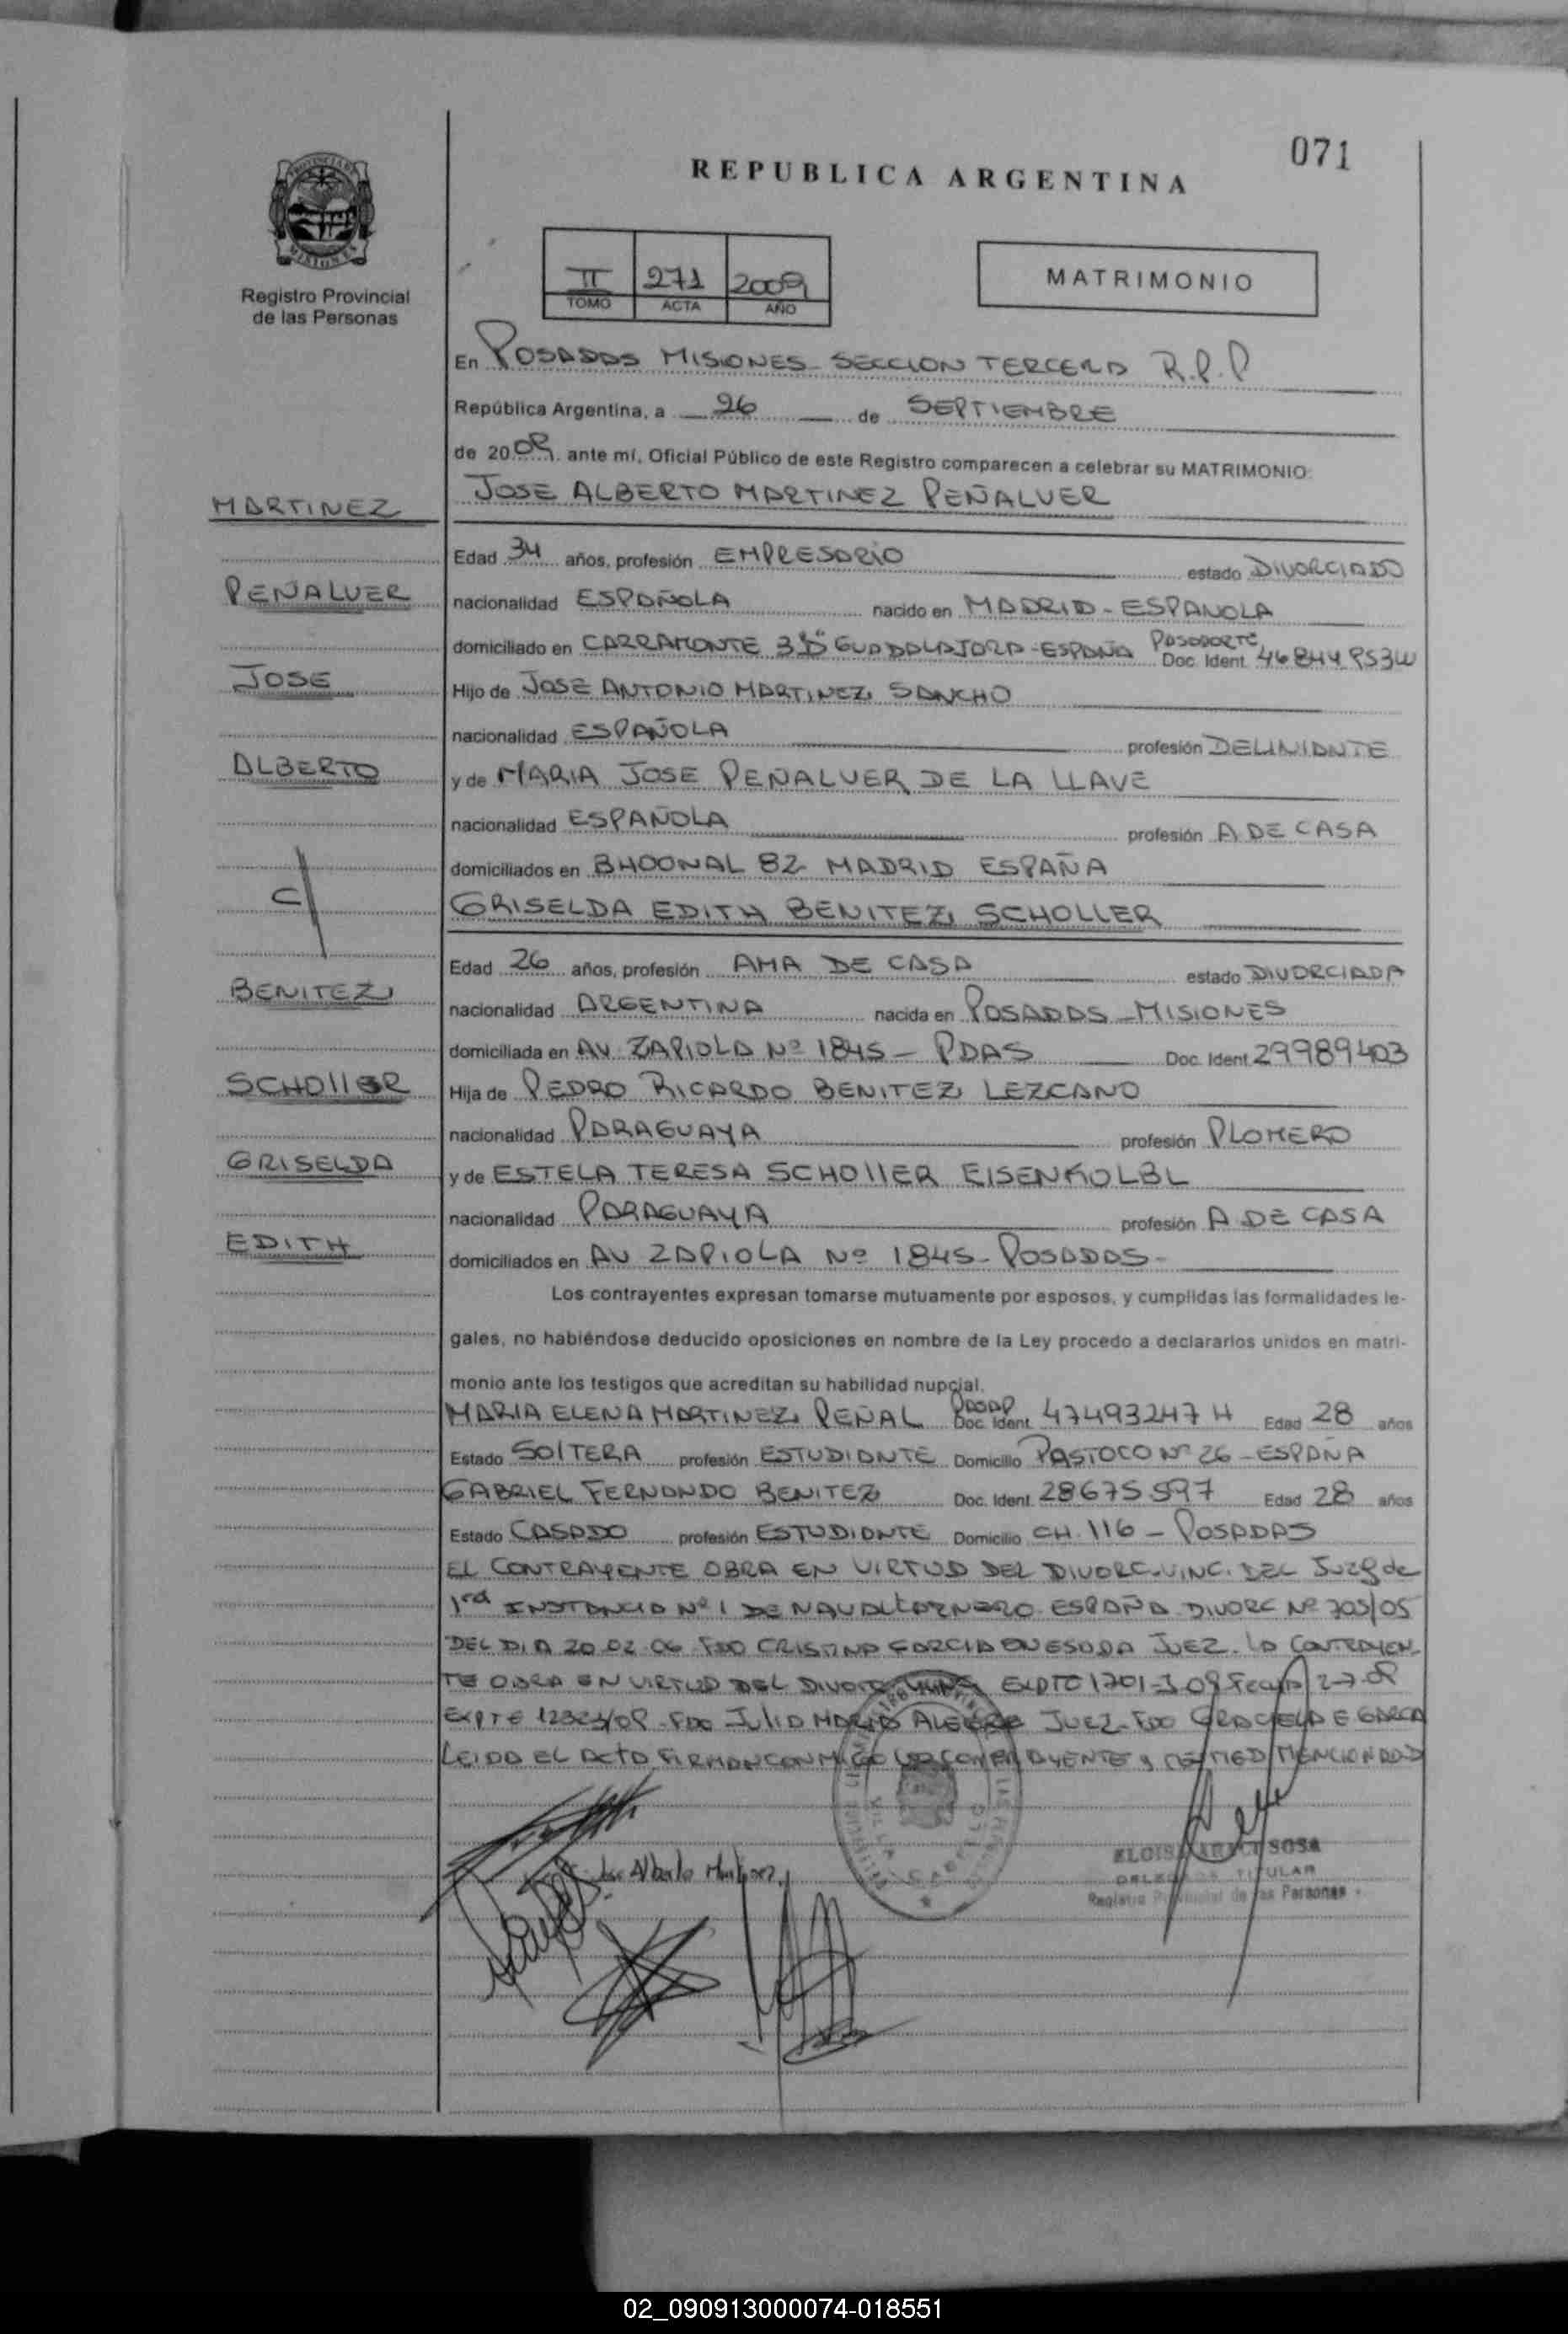 071
REPUBLICA ARGENTINA
PROVINCIA DE
MISIONES
Registro Provincial
de las Personas
II 271 2009
TOMO ACTA AÑO
MATRIMONIO
En POSADAS MISIONES SECCION TERCERA R.P.P
República Argentina, a 26 de SEPTIEMBRE
de 2009 ante mí, Oficial Público de este Registro comparecen a celebrar su MATRIMONIO:
JOSE ALBERTO MARTINEZ PEÑALVER
MARTINEZ
PEÑALVER
JOSE
ALBERTO
C/
BENITEZ
SCHOllER
GRISELDA
EDITH
Edad 34 años, profesión EMPRESARIO estado DIVORCIADO
nacionalidad ESPAÑOLA nacido en MADRID - ESPANOLA
domiciliado en CARRAMONTE GUADALAJARA - ESPAÑA PASAPORTE Doc. Ident.
Hijo de JOSE ANTONIO MARTINEZ SANCHO
nacionalidad ESPAÑOLA profesión DELINIANTE
y de MARIA JOSE PEÑALVER DE LA LLAVE
nacionalidad ESPAÑOLA profesión A DE CASA
domiciliados en 82 MADRID ESPAÑA
GRISELDA EDITH BENITEZ SCHOLLER
Edad 26 años, profesión AMA DE CASA estado DIVORCIADA
nacionalidad ARGENTINA nacida en POSADAS - MISIONES
domiciliada en AV. ZAPIOLA Nº 1845 - PDAS Doc. Ident. 29989403
Hija de PEDRO RICARDO BENITEZ LEZCANO
nacionalidad PARAGUAYA profesión PLOMERO
y de ESTELA TERESA SCHOllER EISENKOLBL
nacionalidad PARAGUAYA profesión A DE CASA
domiciliados en AV ZAPIOLA Nº 1845 - POSADAS -
Los contrayentes expresan tomarse mutuamente por esposos, y cumplidas las formalidades le-
gales, no habiéndose deducido oposiciones en nombre de la Ley procedo a declararlos unidos en matri-
monio ante los testigos que acreditan su habilidad nupcial.
MARIA ELENA MARTINEZ PEÑAL PASAP Doc. Ident. 47493247 H Edad 28 años
Estado SOlTERA profesión ESTUDIANTE Domicilio Nº 26 - ESPAÑA
GABRIEL FERNANDO BENITEZ Doc. Ident. 28675597 Edad 28 años
Estado CASADO profesión ESTUDIANTE Domicilio CH. 116 - POSADAS
EL CONTRAYENTE OBRA EN VIRTUD DEL DIVORC. VINC. DEL Juzg de
1ra INSTANCIA Nº 1 DE NAVALCARNERO ESPAÑA DIVORC Nº 703/05
DEL DIA 20.02.06 FDO CRISTINA GARCIA JUEZ. LA CONTRAYEN
TE OBRA EN VIRTUD DEL EXPTE
EXPTE FDO JULIO MARIO ALEGRE JUEZ - FDO GRACIELA E GARCA
LEIDA EL ACTA FIRMAN CONMIGO MENCIONAD
Jose Alberto Martinez
SOSA
TITULAR
Registro Provincial de las Personas
02_090913000074-018551